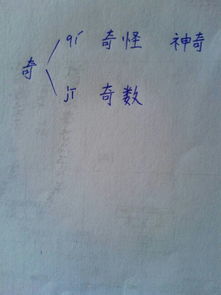 qí 奇怪 神奇
奇
jī 奇数